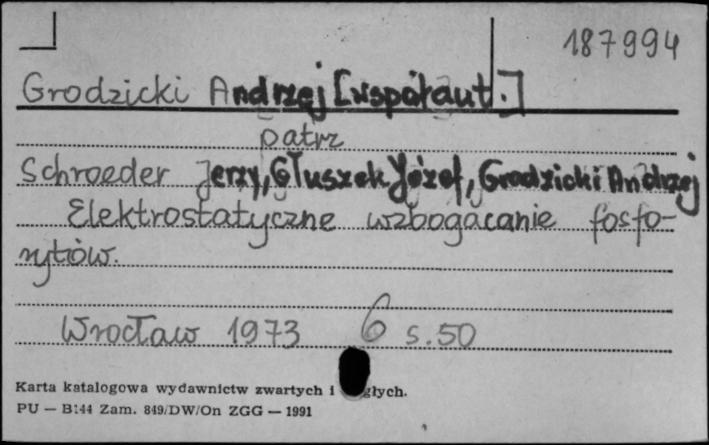 187994
Grodzicki Andrzej [współaut.]
patrz
Schroeder Jerzy, Głuszek Józef, Grodzicki Andrzej
Elektrostatyczne wzbogacanie fosfo-
rytów.
Wrocław 1973 s. 50
Karta katalogowa wydawnictw zwartych i
PU — B144 Zam. 849/DW/On ZGG — 1991